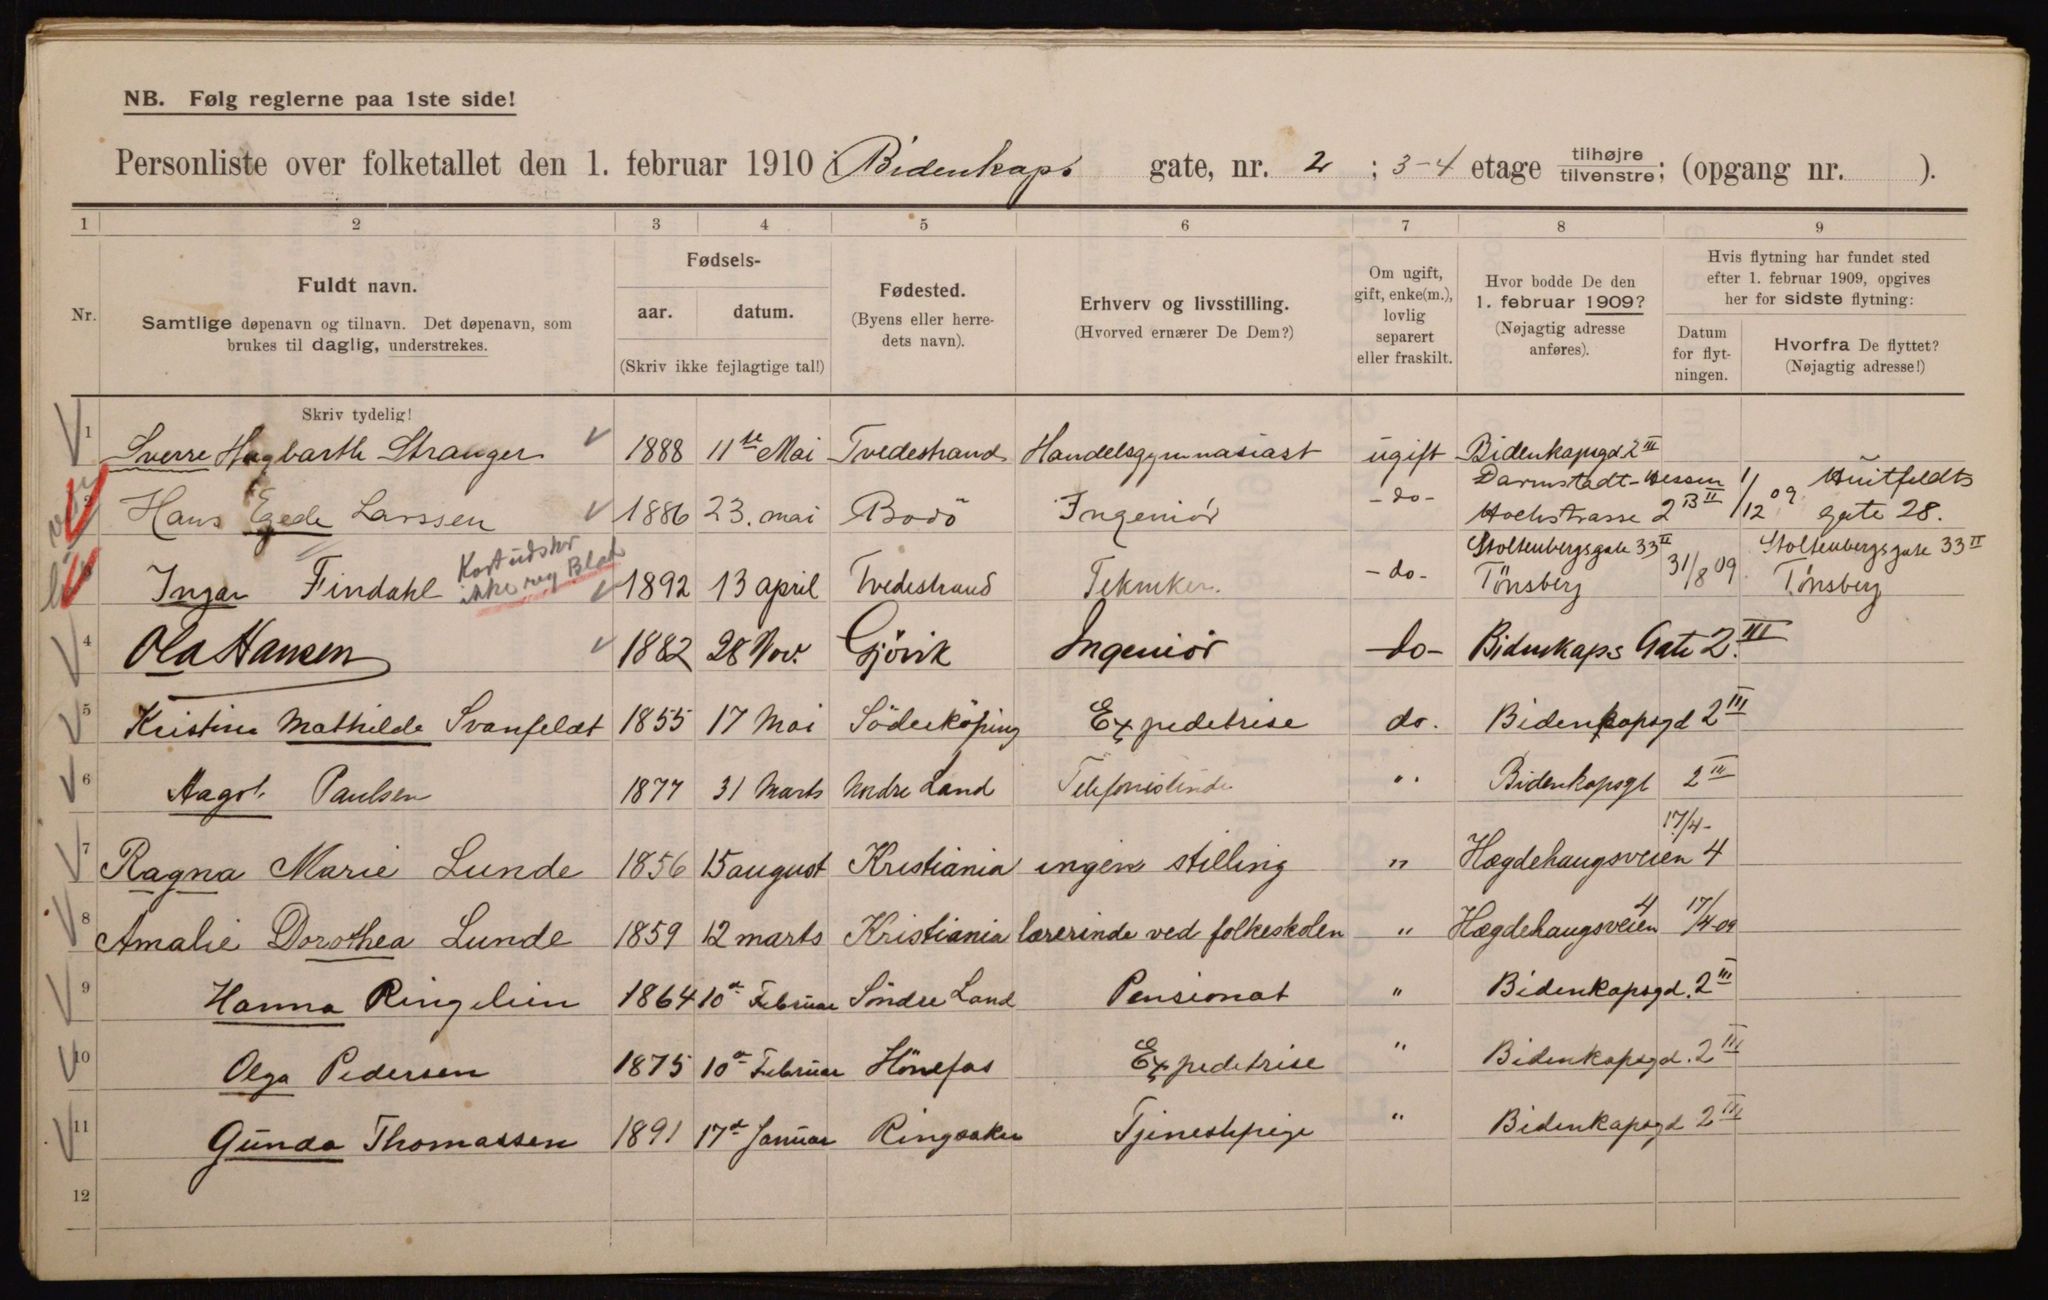 NB. Følg reglerne paa 1ste side!
Personliste over folketallet den 1. februar 1910 i Bidenkaps gate, nr. 2 ; 3-4 etage tilhøjre tilvenstre; (opgang nr. ).
1 2 3 4 5 6 7 8 9
Nr.
Fuldt navn.
Samtlige døpenavn og tilnavn. Det døpenavn, som
brukes til daglig, understrekes.
Fødsels-
aar. datum.
(Skriv ikke fejlagtige tal!)
Fødested.
(Byens eller herre-
dets navn).
Erhverv og livsstilling.
(Hvorved ernærer De Dem?)
Om ugift,
gift, enke(m.),
lovlig
separert
eller fraskilt.
Hvor bodde De den
1. februar 1909?
(Nøjagtig adresse
anføres).
Hvis flytning har fundet sted
efter 1. februar 1909, opgives
her for sidste flytning:
Datum
for flyt-
ningen.
Hvorfra De flyttet?
(Nøjagtig adresse!)
Skriv tydelig!
1 Sverre Hagbarth Stranger 1888 11te Mai Tvedestrand Handelsgymnasiast ugift Bidenkapsgd 2 III
2 Hans Egede Larssen 1886 23. mai Bodö Ingeniör -do- Darmstadt-Hessen Hochstrasse 2 II 1/12 09 Huitfeldts gate 28.
Kortudskr
ikke reg Blad
3 Ingar Findahl 1892 13 april Tvedestrand Tekniker. -do- Stoltenbergsgate 33 II Tönsberg 31/8 09 Stoltenbergsgate 33 II Tönsberg
4 Ola Hansen 1882 28 Nov. Gjövik Ingeniör -do- Bidenkaps Gate 2 III
5 Kristina Mathilde Svanfeldt 1855 17 Mai Söderköping Expeditrise do. Bidenkapsgd 2 III
6 Aagot Paulsen 1877 31 Marts Nordre Land Telefonistinde " Bidenkapsgt 2 III
7 Ragna Marie Lunde 1856 15 august Kristiania ingen stilling " Hægdehaugsveien 4 17/4-
8 Amalie Dorothea Lunde 1859 12 marts Kristiania lærerinde ved folkeskolen " Hægdehaugsveien 4 17/4-09
9 Hanna Ringelien 1864 10de Februar Söndre Land Pensionat " Bidenkapsgd. 2 III
10 Olga Pedersen 1875 10de Februar Hönefos Expeditrise " Bidenkapsgd. 2 III
11 Gunda Thomassen 1891 17de Januar Ringsaker Tjenestepige " Bidenkapsgd 2 III
12